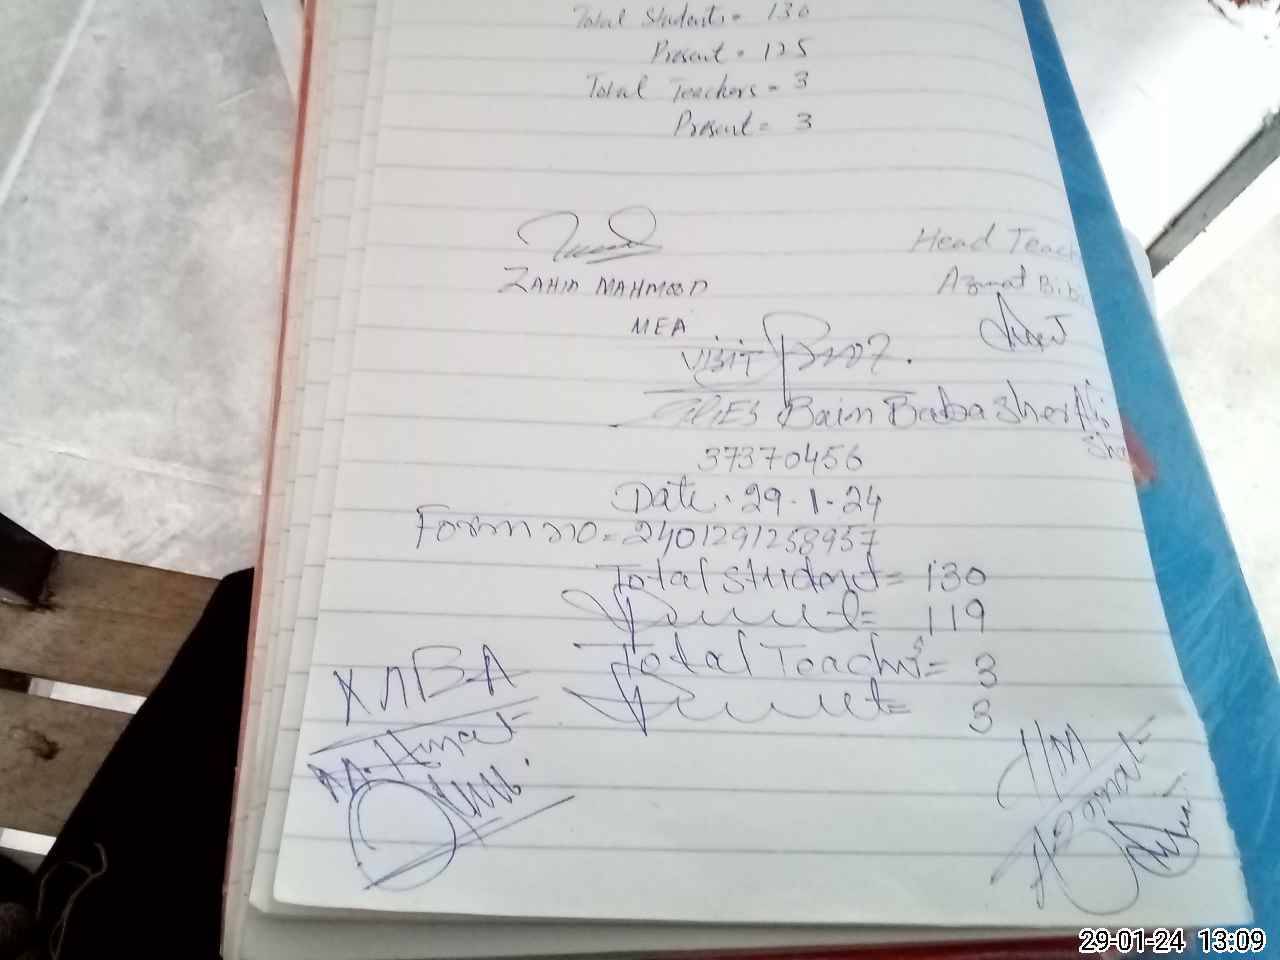 Total Students = 130
Present = 125
Total Teachers = 3
Present = 3
Head Teach
ZAHID MAHMOOD
Azmat Bibi
MEA
VISIT
Bain Baba Sher Ali
37370456
Date: 29-1-24
Form no = 2401291258957
Total Student = 130
Present = 119
Total Teachers = 3
Present = 3
HM
Azmat
29-01-24 13:09